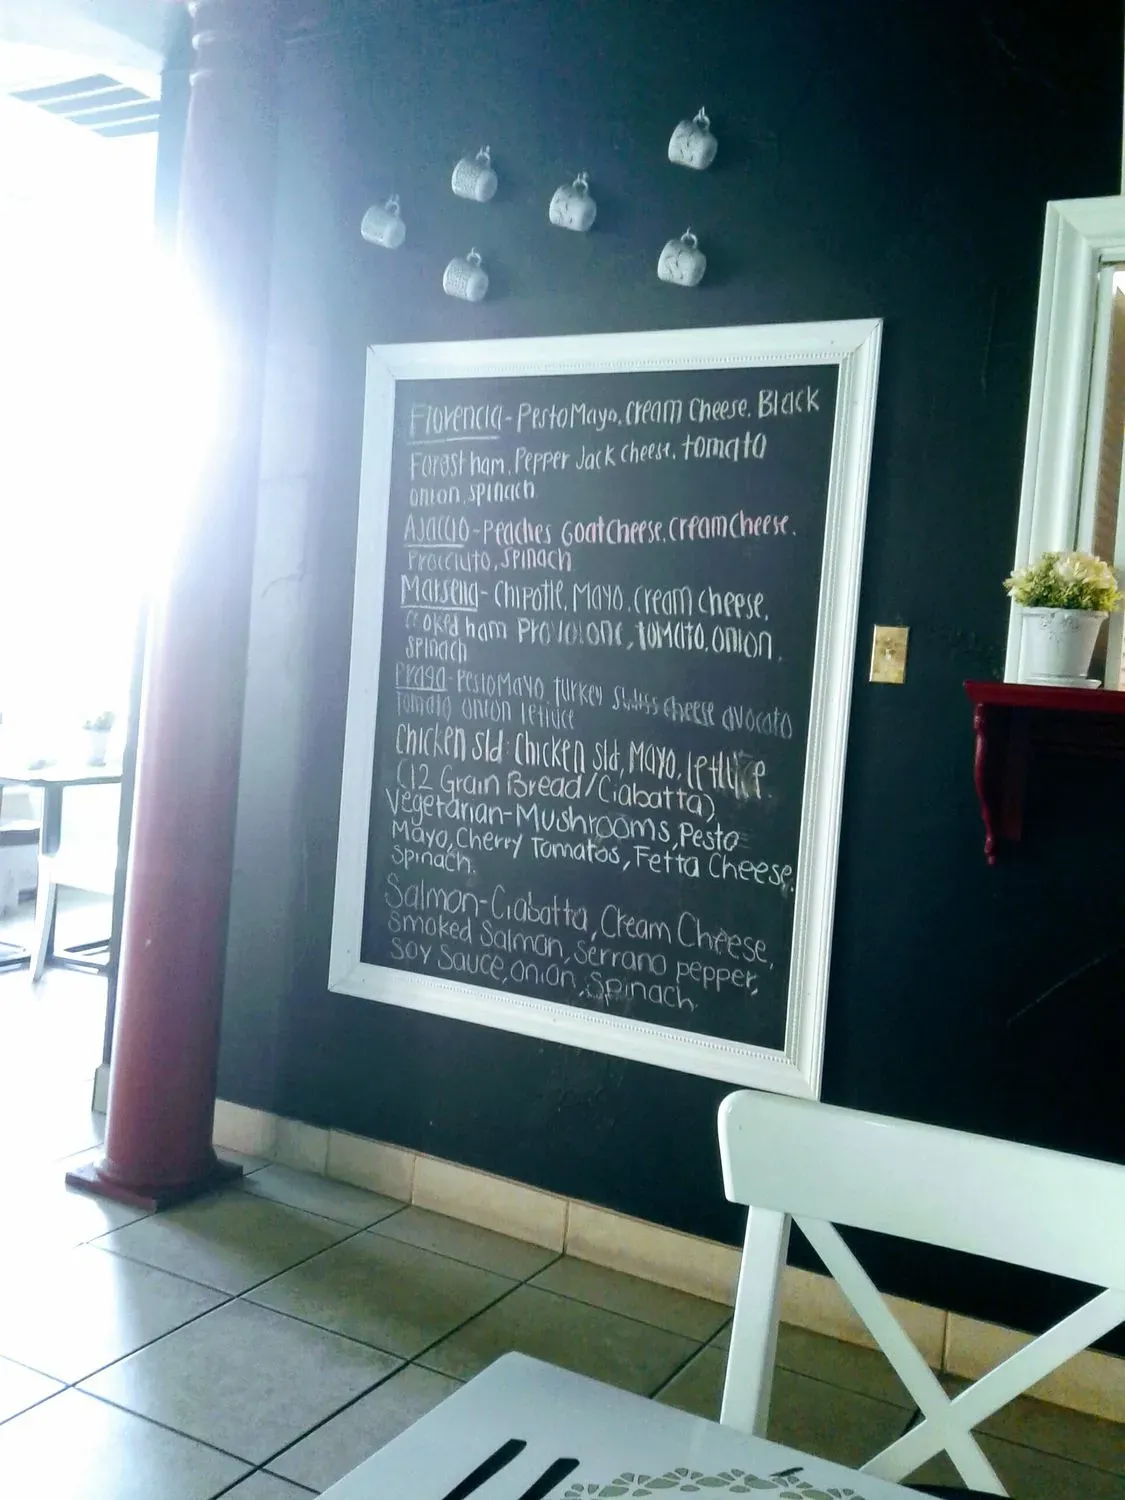 Florencia - Pesto Mayo, Cream Cheese, Black
Forest ham, Pepper Jack cheese, tomato
onion, spinach
Ajaccio - Peaches Goat Cheese, Cream Cheese,
Prosciuto, Spinach
Marsella - Chipotle, Mayo, Cream cheese,
Cooked ham Provolone, tomato, onion,
spinach
Praga - Pesto Mayo, turkey Swiss cheese avocato
tomato onion lettuce
Chicken Sld: Chicken Sld, Mayo, lettuce.
(12 Grain Bread/Ciabatta)
Vegetarian-Mushrooms, Pesto
Mayo, Cherry Tomatos, Fetta Cheese,
Spinach.
Salmon-Ciabatta, Cream Cheese,
Smoked Salmon, Serrano pepper,
Soy Sauce, onion, Spinach.